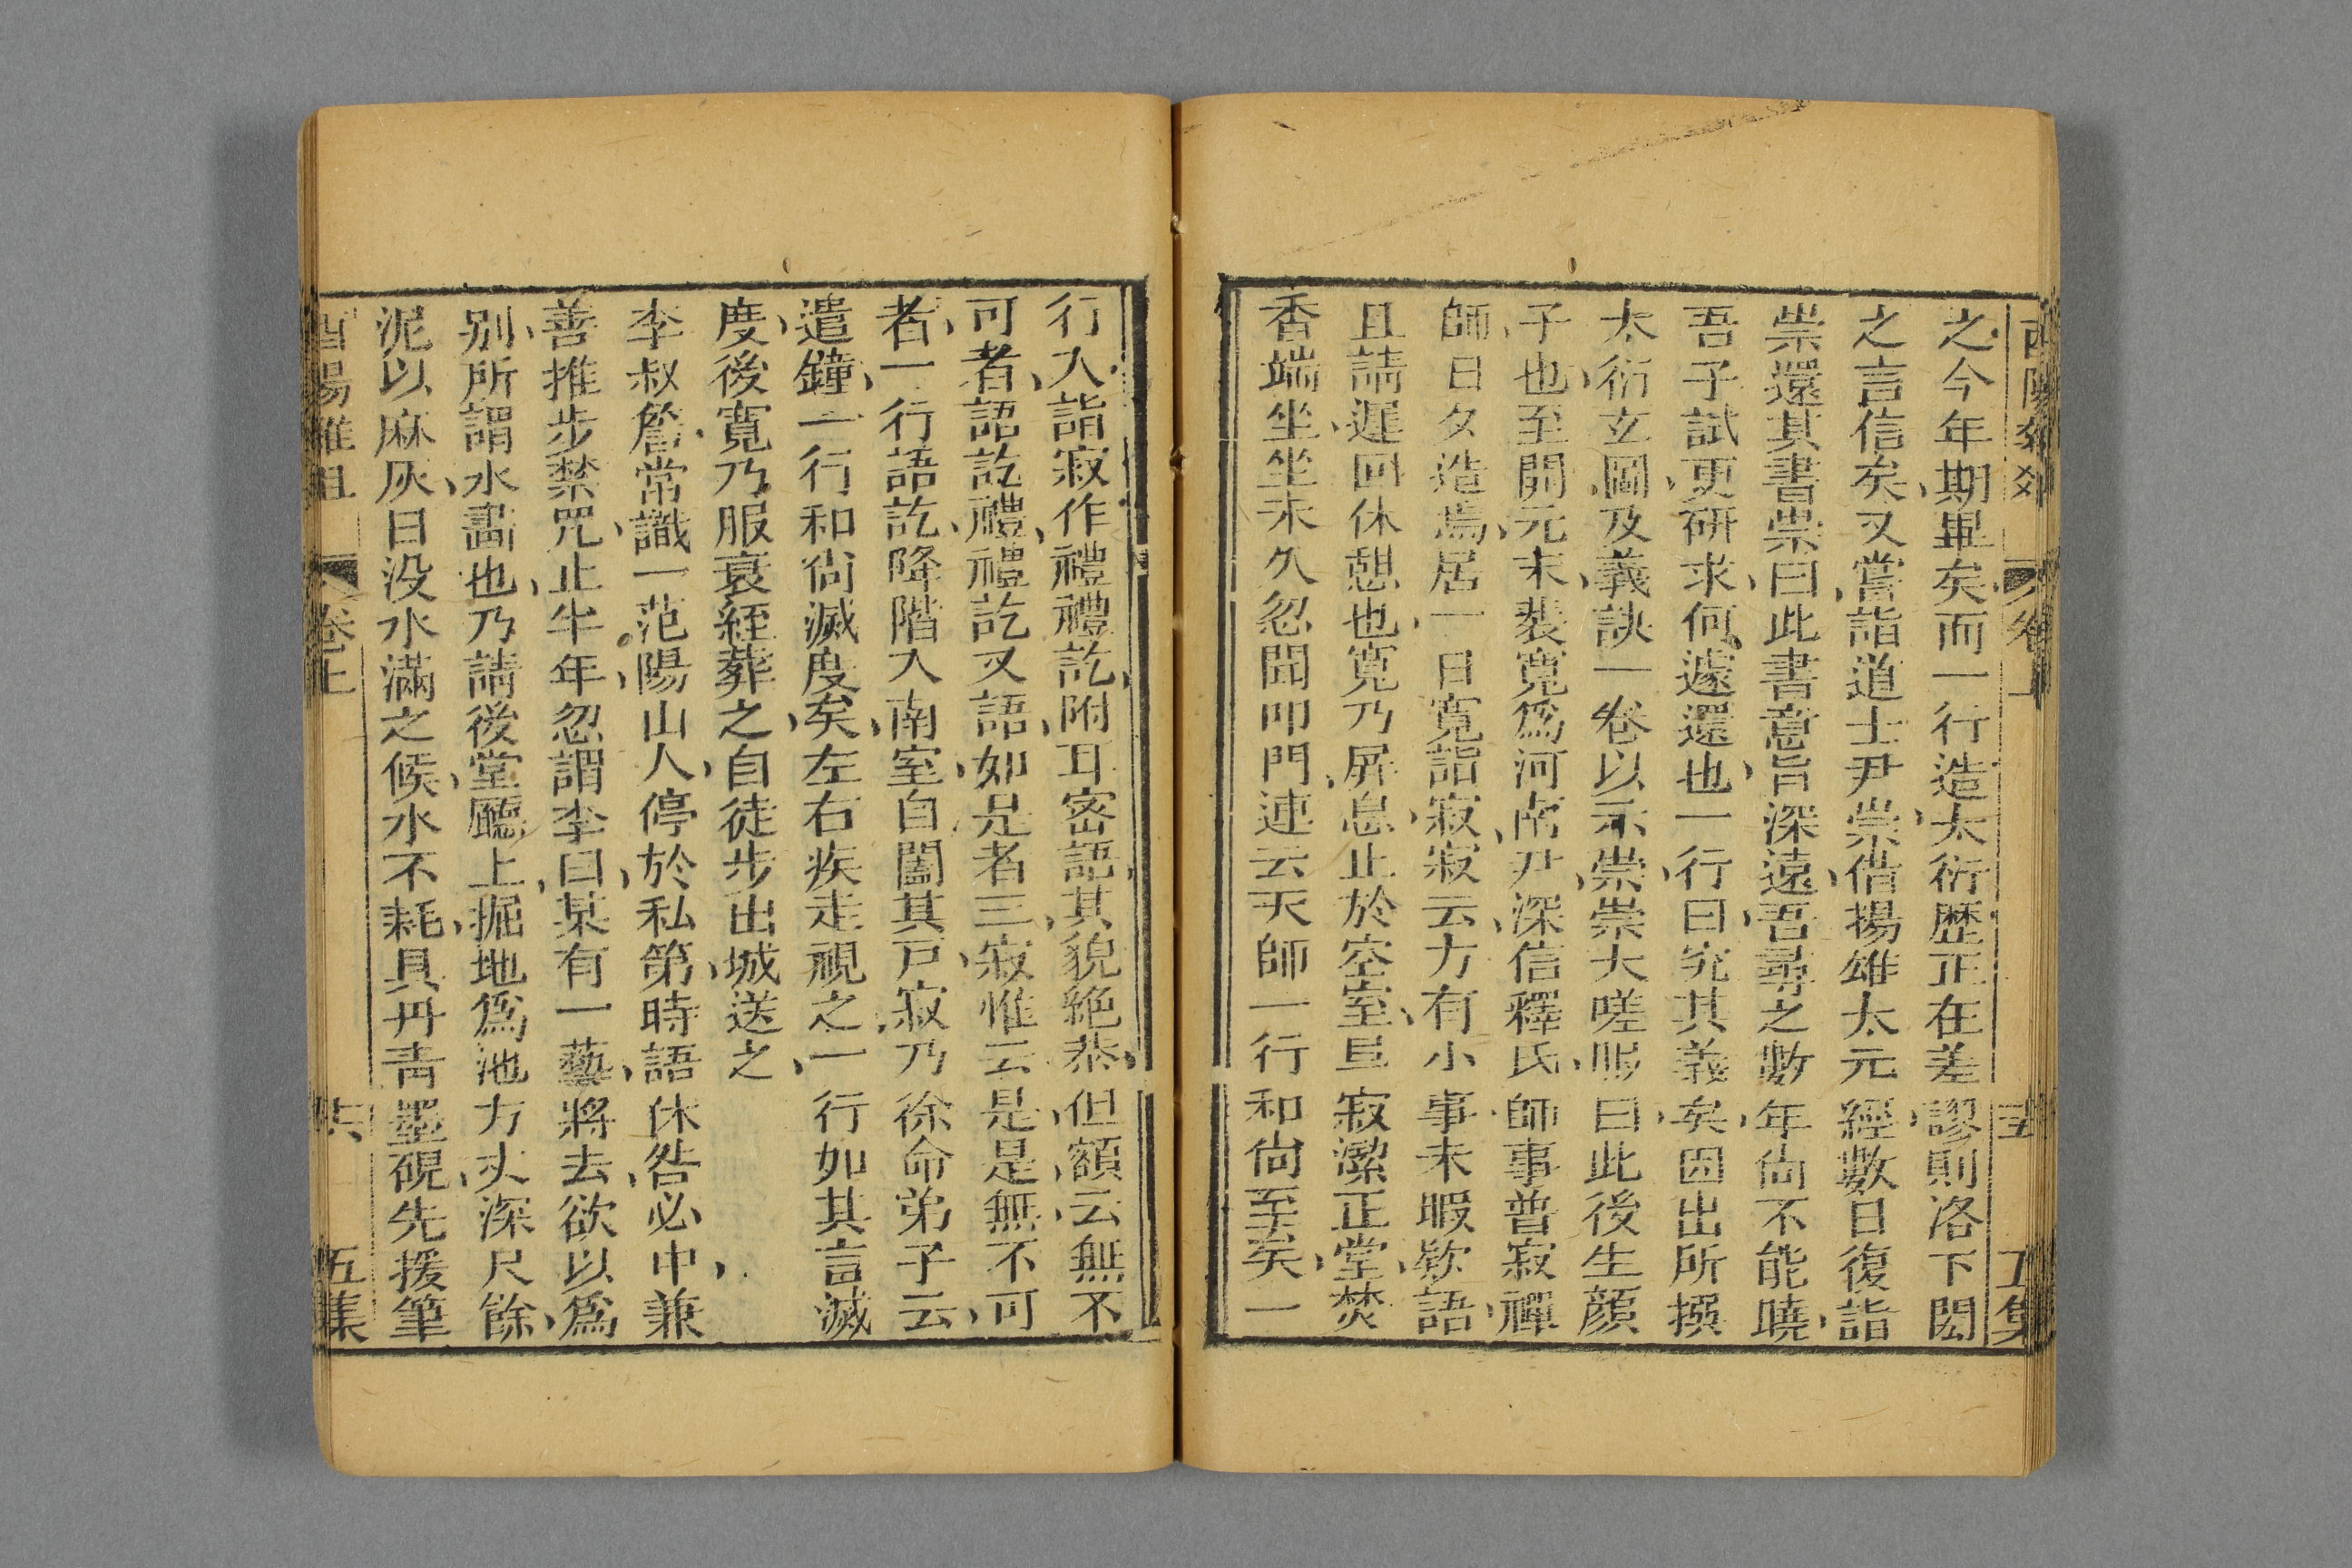 酉陽雜俎 卷上 五 五集
之今年期畢矣而一行造太衍歷正在差謬則洛下閎
之言信矣又嘗詣道士尹崇借揚雄太元經數日復詣
崇還其書崇曰此書意旨深遠吾尋之數年尚不能曉
吾子試更研求何遽還也一行曰究其義矣因出所撰
太衍玄圖及義訣一卷以示崇崇大嗟服曰此後生顔
子也至開元末裴寬爲河南尹深信釋氏師事普寂禪
師日夕造焉居一日寬詣寂寂云方有小事未暇欵語
且請遲回休憩也寬乃屏息止於空室㫜寂潔正堂焚
香端坐坐未久忽聞叩門連云天師一行和尚至矣一
行入詣寂作禮禮訖附耳密語其貌絶恭但額云無不
可者語訖禮禮訖又語如是者三寂惟云是是無不可
者一行語訖降階入南室自闔其戸寂乃徐命弟子云
遣鐘一行和尚滅度矣左右疾走視之一行如其言滅
度後寛乃服衰絰葬之自徒步出城送之
李叔詹常識一范陽山人停於私第時語休咎必中兼
善推步禁咒止半年忽謂李曰某有一藝將去欲以爲
別所謂水畵也乃請後堂廳上掘地爲池方丈深尺餘
泥以麻灰日没水滿之候水不耗具丹靑墨硯先援筆
酉陽雜俎 卷上 六 五集